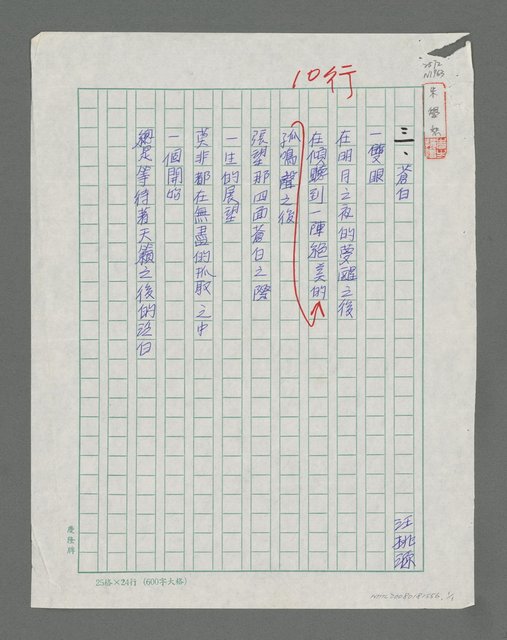 10行
三 蒼白
汪桃源
一雙眼
在明月之夜的夢醒之後
在傾聽到一陣絕美的
孤鳴聲之後
張望那四面蒼白之際
一生的展望
莫非都在無盡的抓取之中
一個開始
總是等待著天籟之後的沒白
慶隆牌
25格×24行 (600字大格)
NMTL20080181556. 1/1